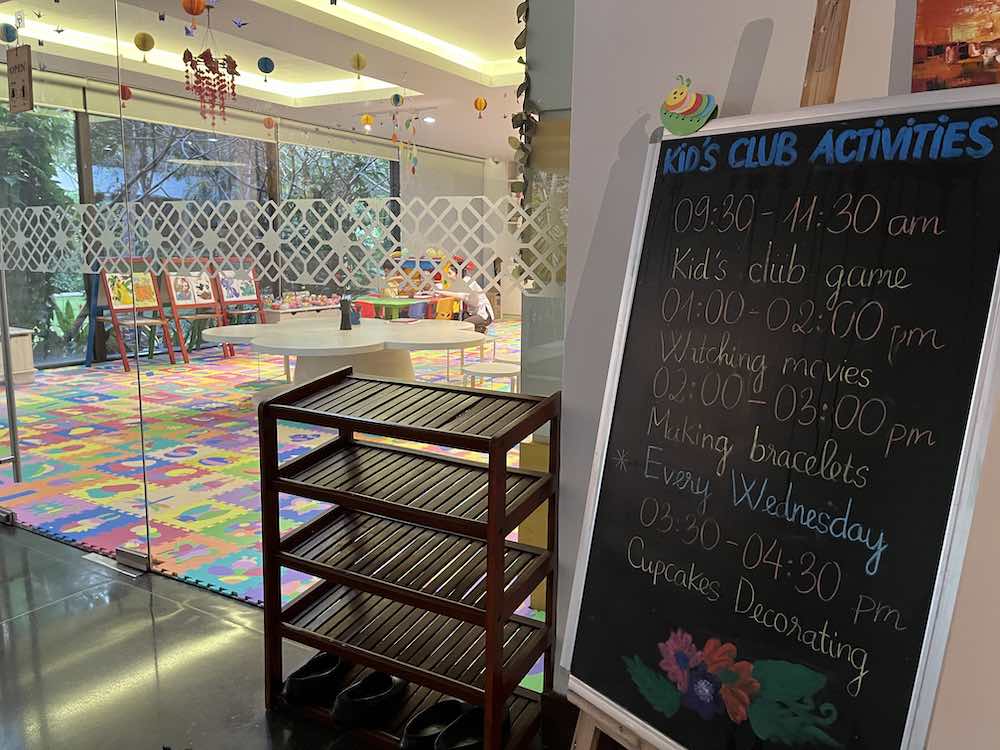 OPEN
KID'S CLUB ACTIVITIES
09:30 - 11:30 am
Kid's club game
01:00 - 02:00 pm
Watching movies
02:00 - 03:00 pm
Making bracelets
* Every Wednesday
03:30 - 04:30 pm
Cupcakes Decorating